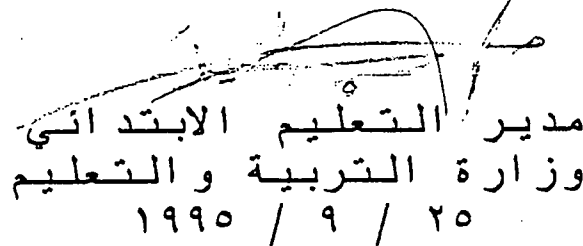 مدير التعليم الابتدائي
وزارة التربية والتعليم
٢٥ / ٩ / ١٩٩٥